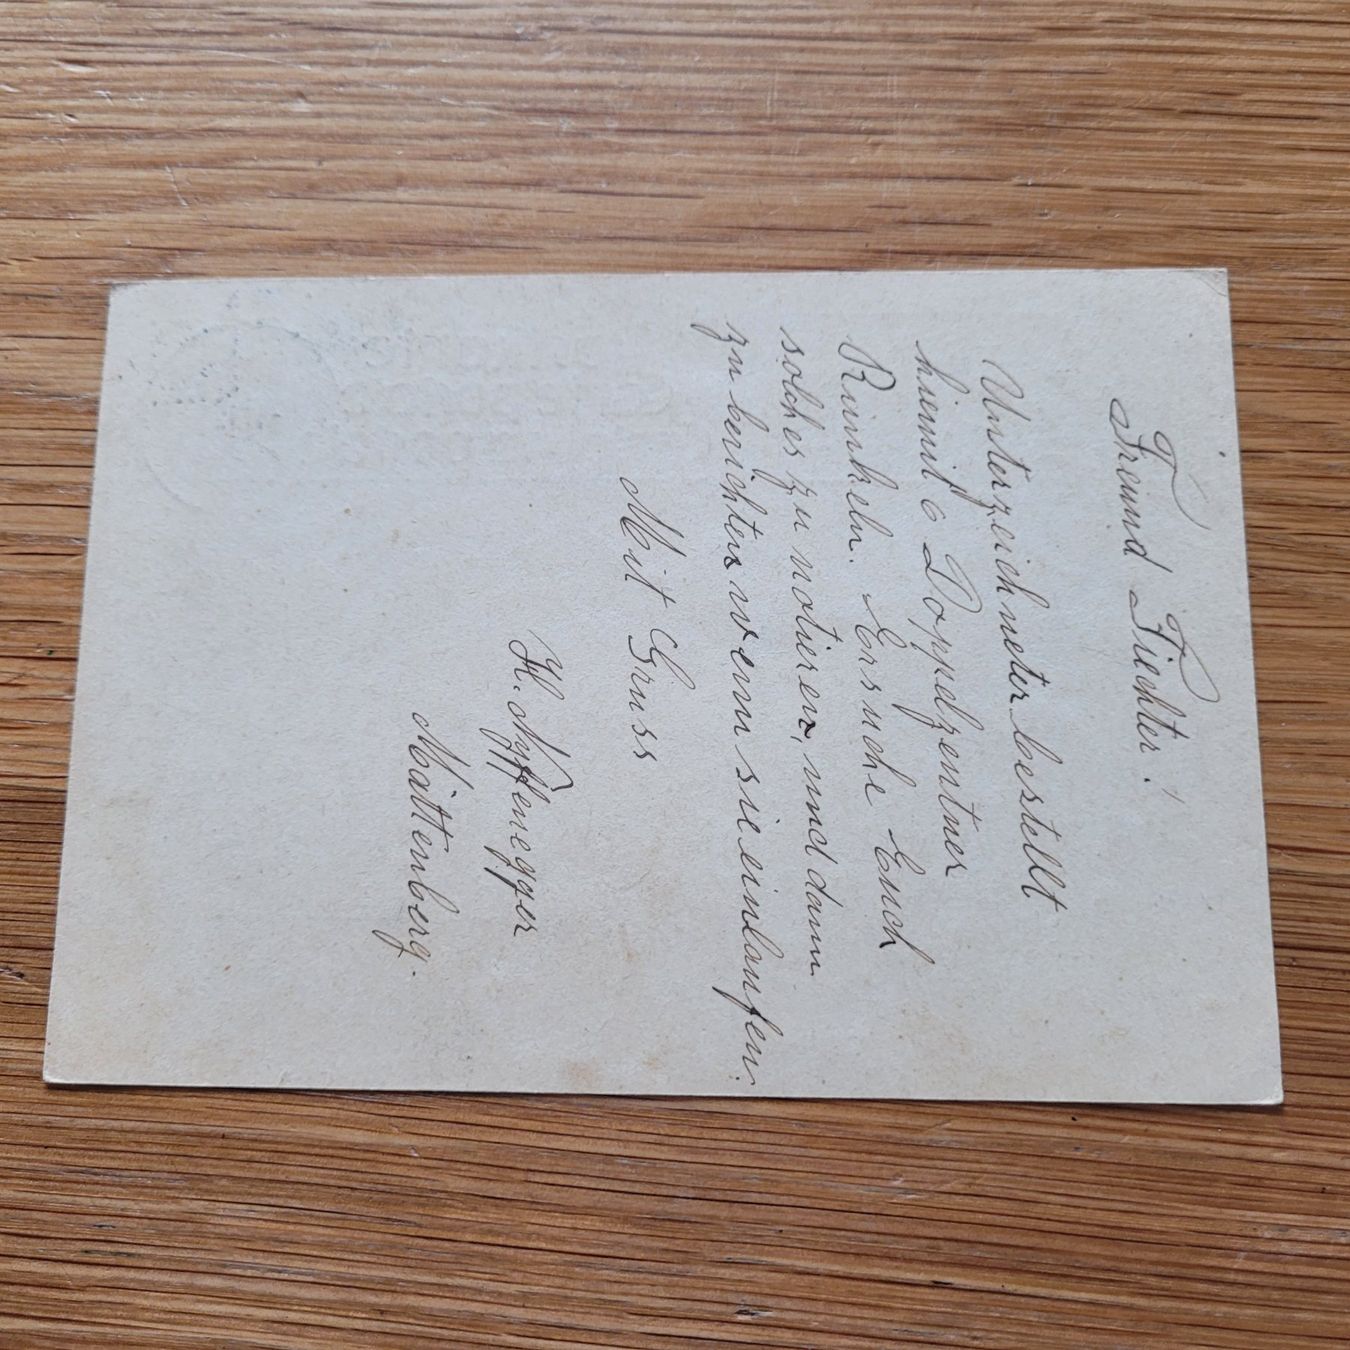 Freund Fiechter!
Unterzeichneter bestellt
hiemit 6 Doppelzentner
Runkeln. Ersuche Euch
solches zu notieren, und dann
zu berichten wenn sie einlaufen.
Mit Gruss
H. Nyffenegger
Mättenberg.